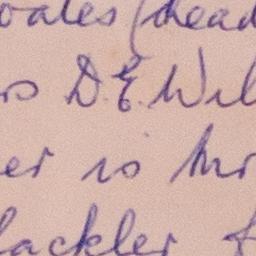 oates (head
rs D.E. Wil
er is Mr
lackler